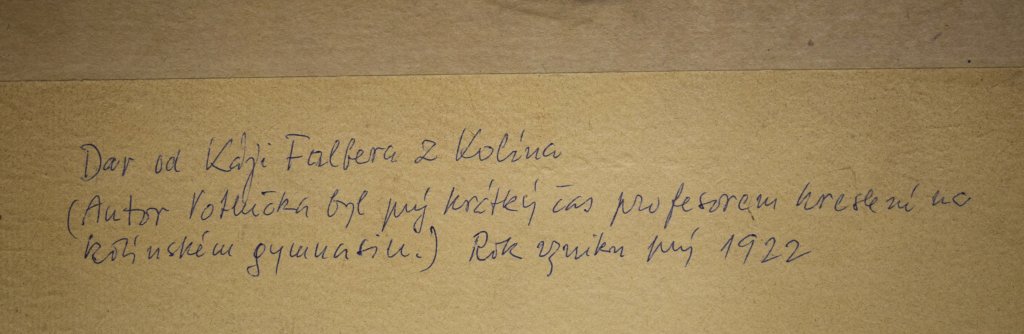 Dar od Káji Falbera z Kolína
(Autor Votlučka byl prý krátký čas profesorem kreslení na
kolínském gymnasiu.) Rok vzniku prý 1922